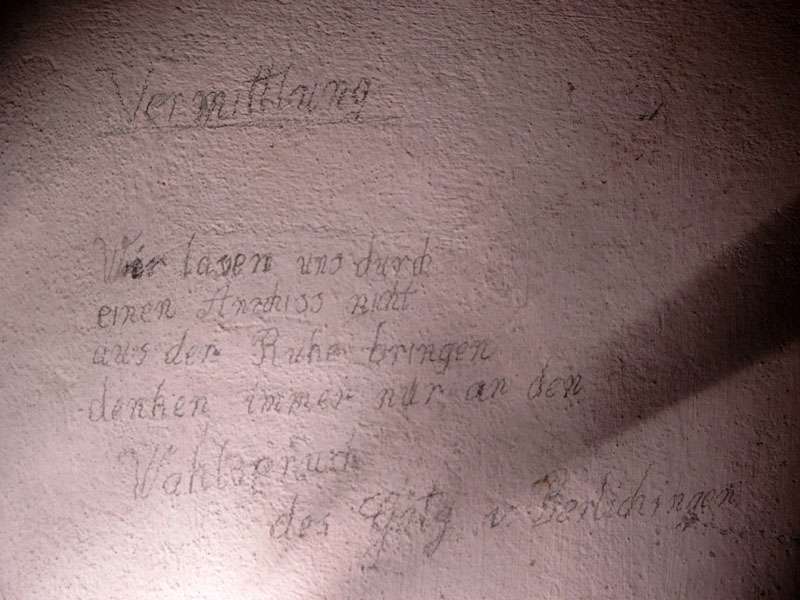 Vermittlung
Wir lasen uns durch
einen Anschiss nicht
aus der Ruhe bringen
denken immer nur an den
Wahlspruch
des Götz v Berlichingen